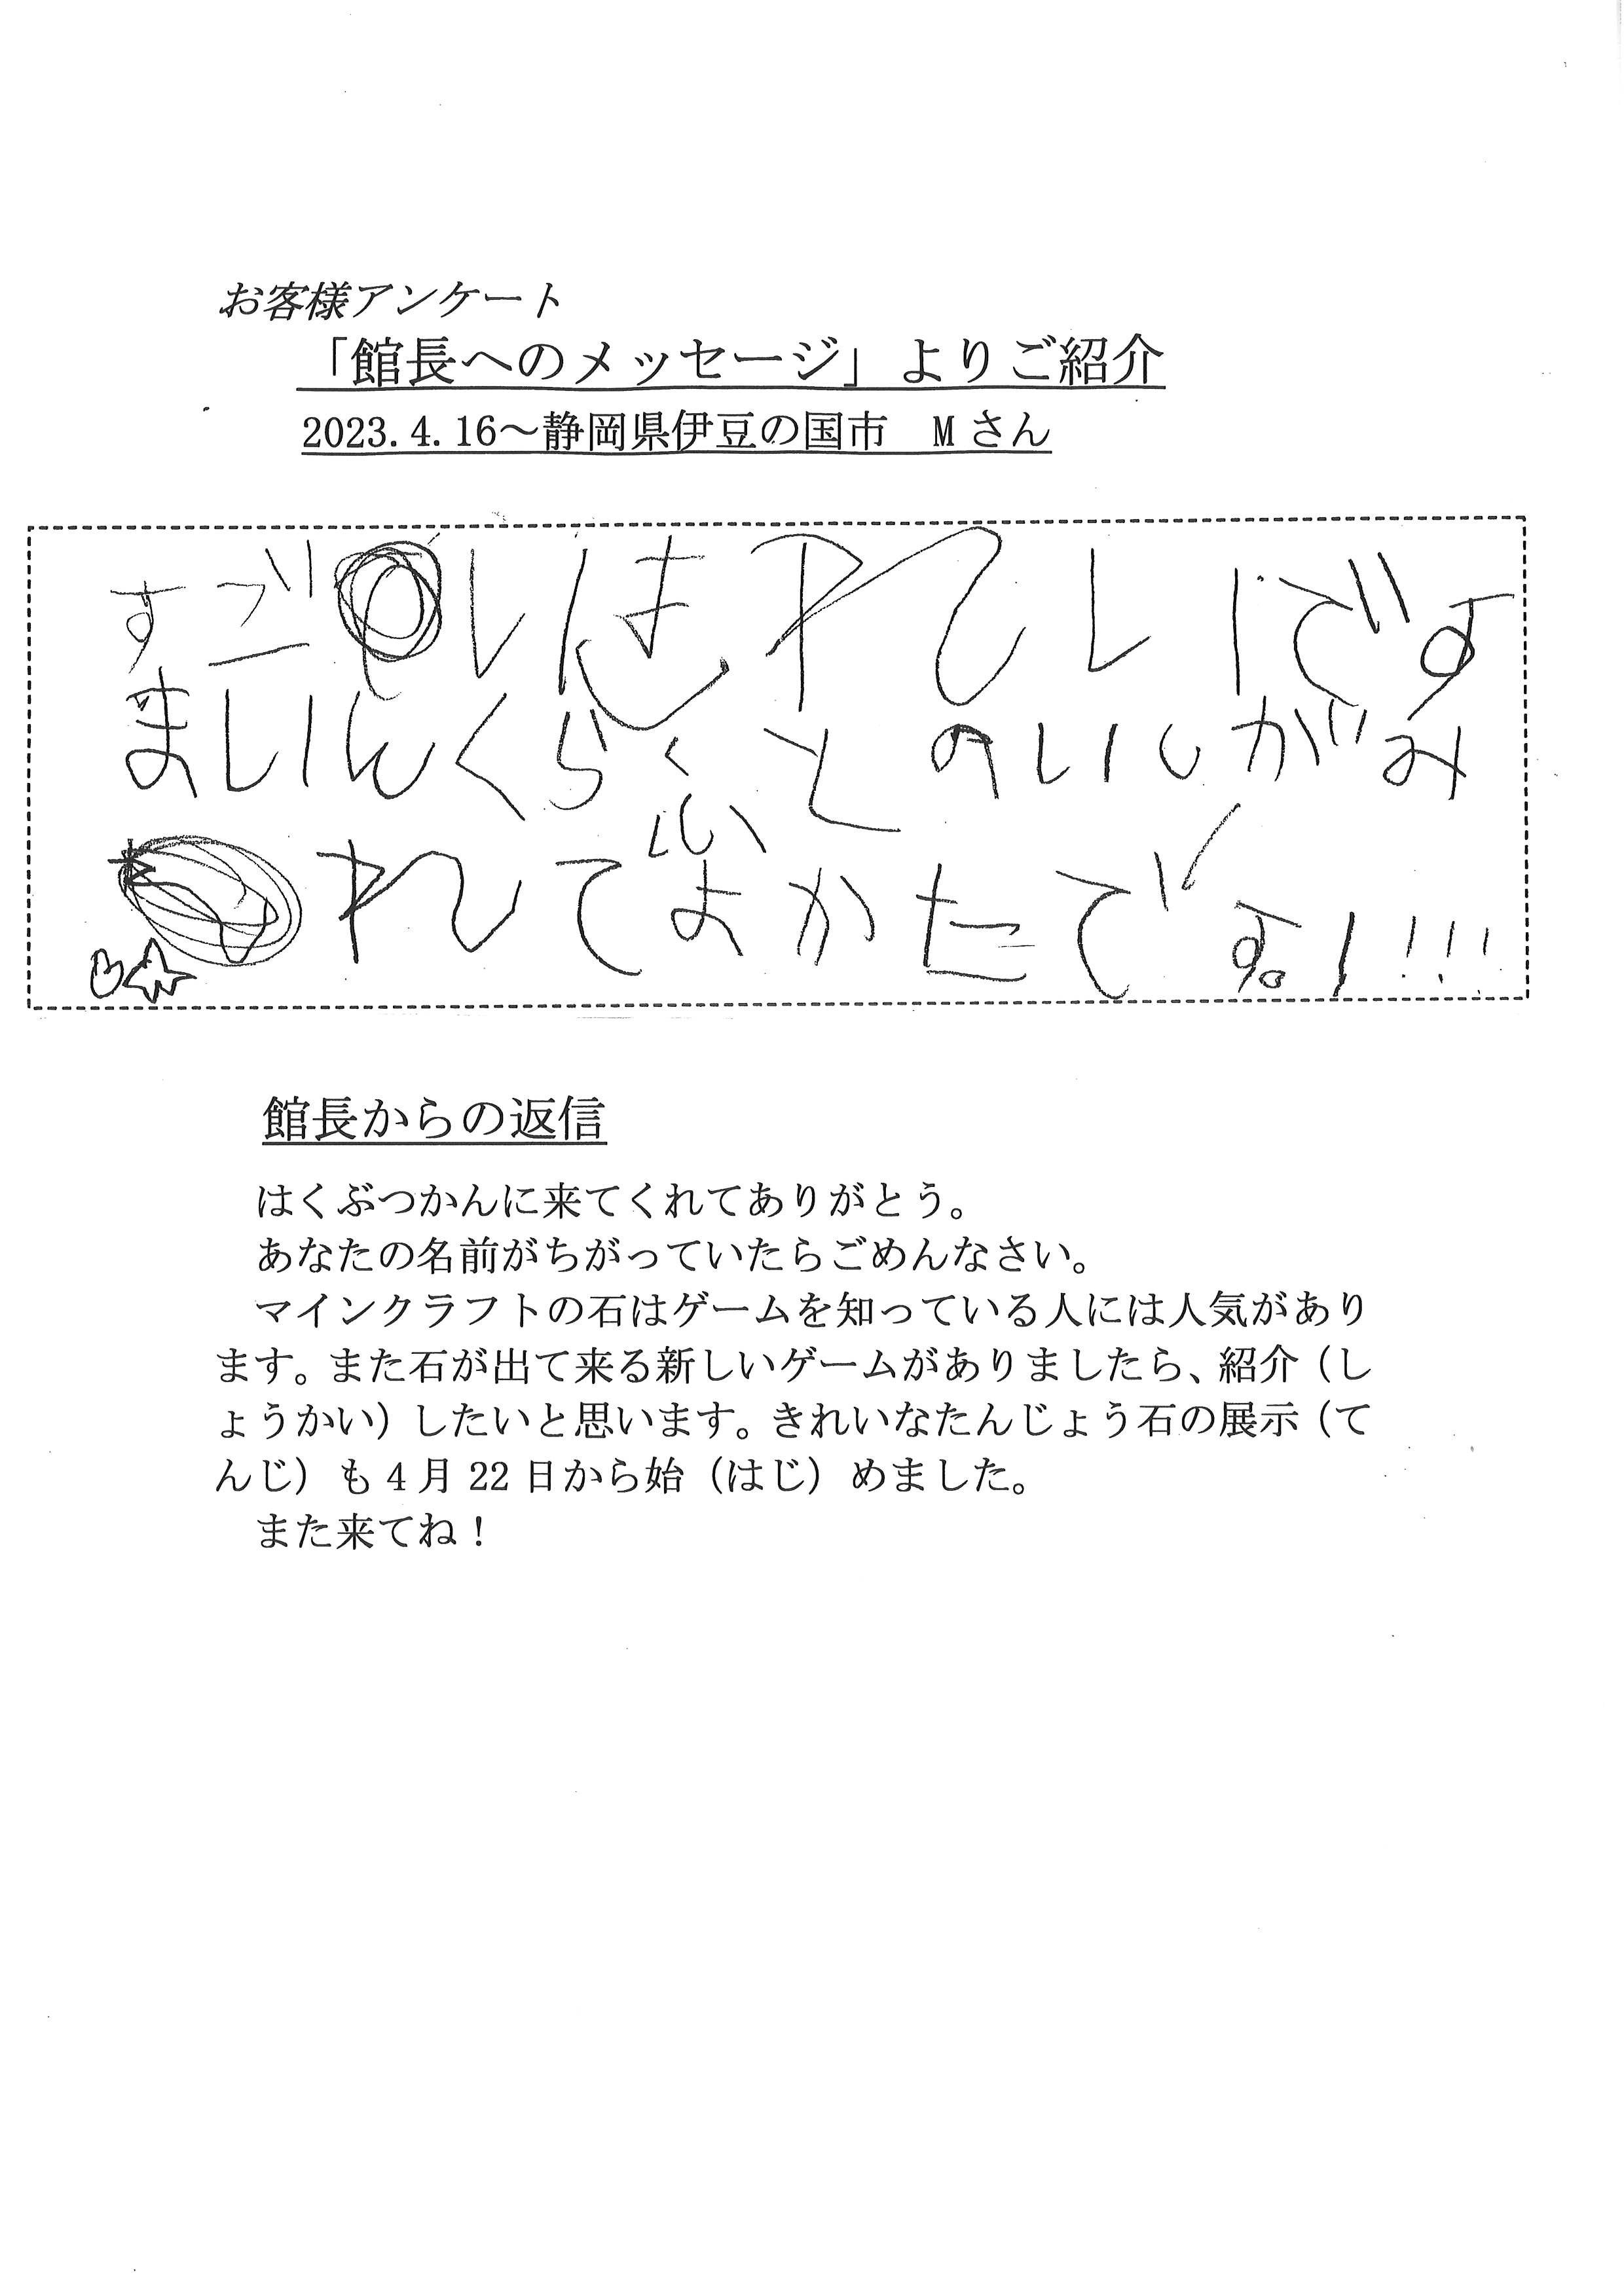 お客様アンケート
「館長へのメッセージ」よりご紹介
2023.4.16～静岡県伊豆の国市　Mさん
すごいきれいです
まいんくらふとのいしがみ
れてよかたです。!!!!
館長からの返信
はくぶつかんに来てくれてありがとう。
あなたの名前がちがっていたらごめんなさい。
マインクラフトの石はゲームを知っている人には人気があり
ます。また石が出て来る新しいゲームがありましたら、紹介（し
ょうかい）したいと思います。きれいなたんじょう石の展示（て
んじ）も4月22日から始（はじ）めました。
また来てね！